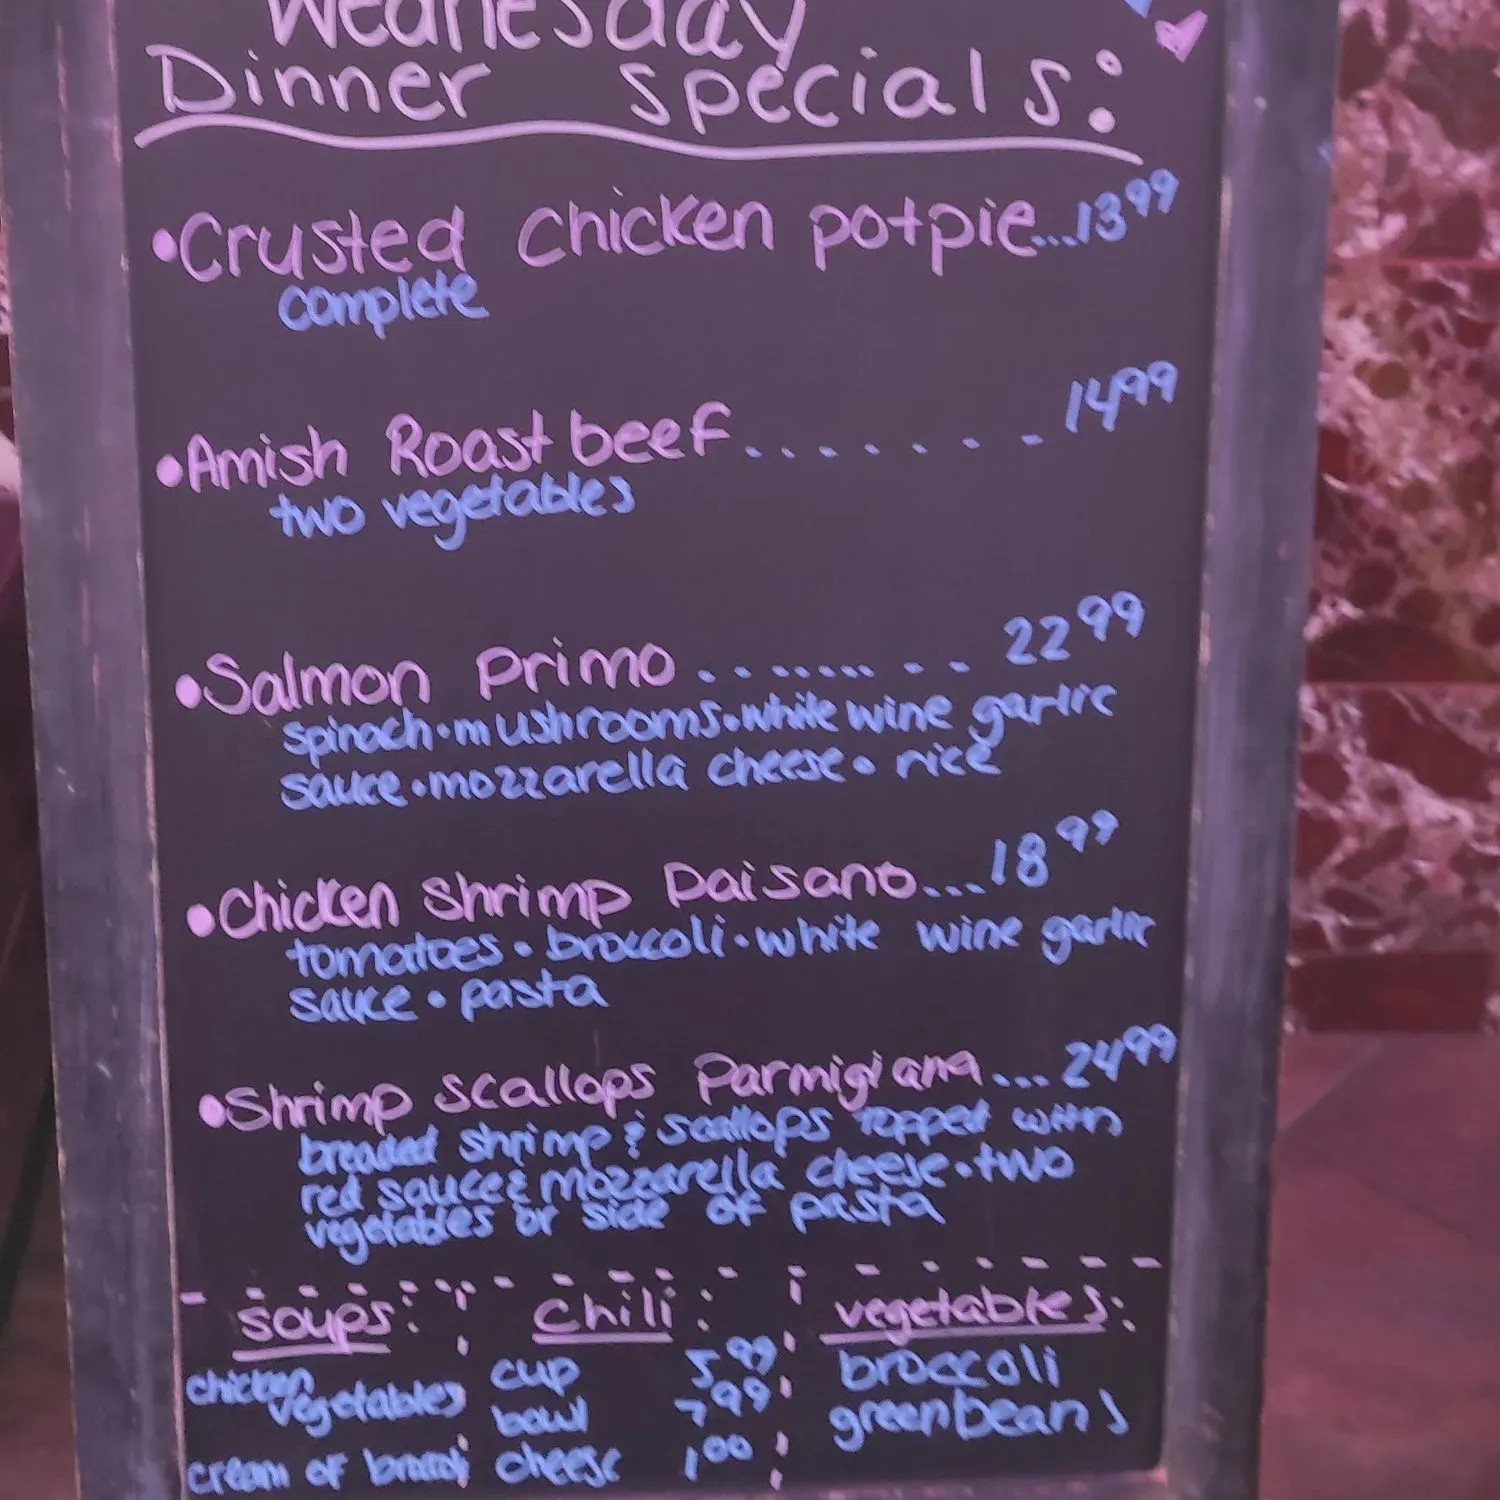 Wednesday
Dinner specials:
•Crusted Chicken potpie...13 99
complete
•Amish Roast beef......... 14 99
two vegetables
•Salmon primo .......... 22 99
spinach•mushrooms•white wine garlic
sauce•mozzarella cheese• rice
•Chicken shrimp paisano...18 99
tomatoes • broccoli • white wine garlic
sauce • pasta
•Shrimp scallops Parmigiana... 24 99
breaded shrimp & scallops topped with
red sauce & mozzarella cheese • two
vegetables or side of pasta
soups:
chicken
vegetables
cream of broccoli
chili:
cup 5 99
bowl 7 99
cheese 1 00
vegetables:
broccoli
greenbeans